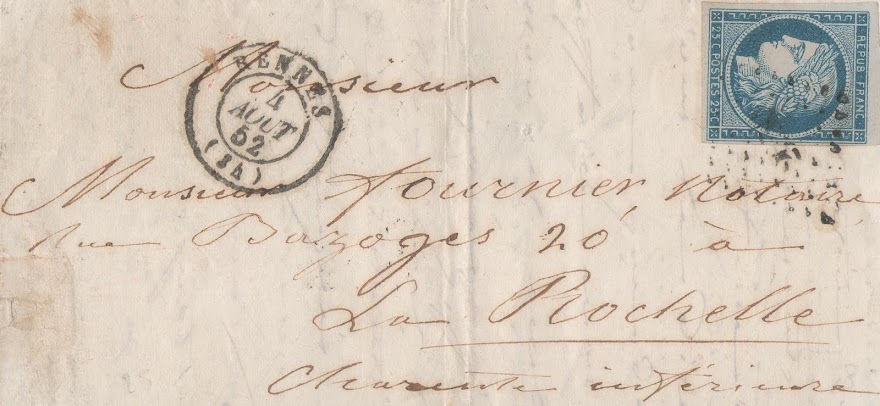 REPUB. FRANC.
25 C POSTES 25 C
RENNES
4
AOUT
52
(34)
Monsieur
Monsieur Fournier, Notaire,
rue Bazoges 20 à
La Rochelle
Charente inférieure